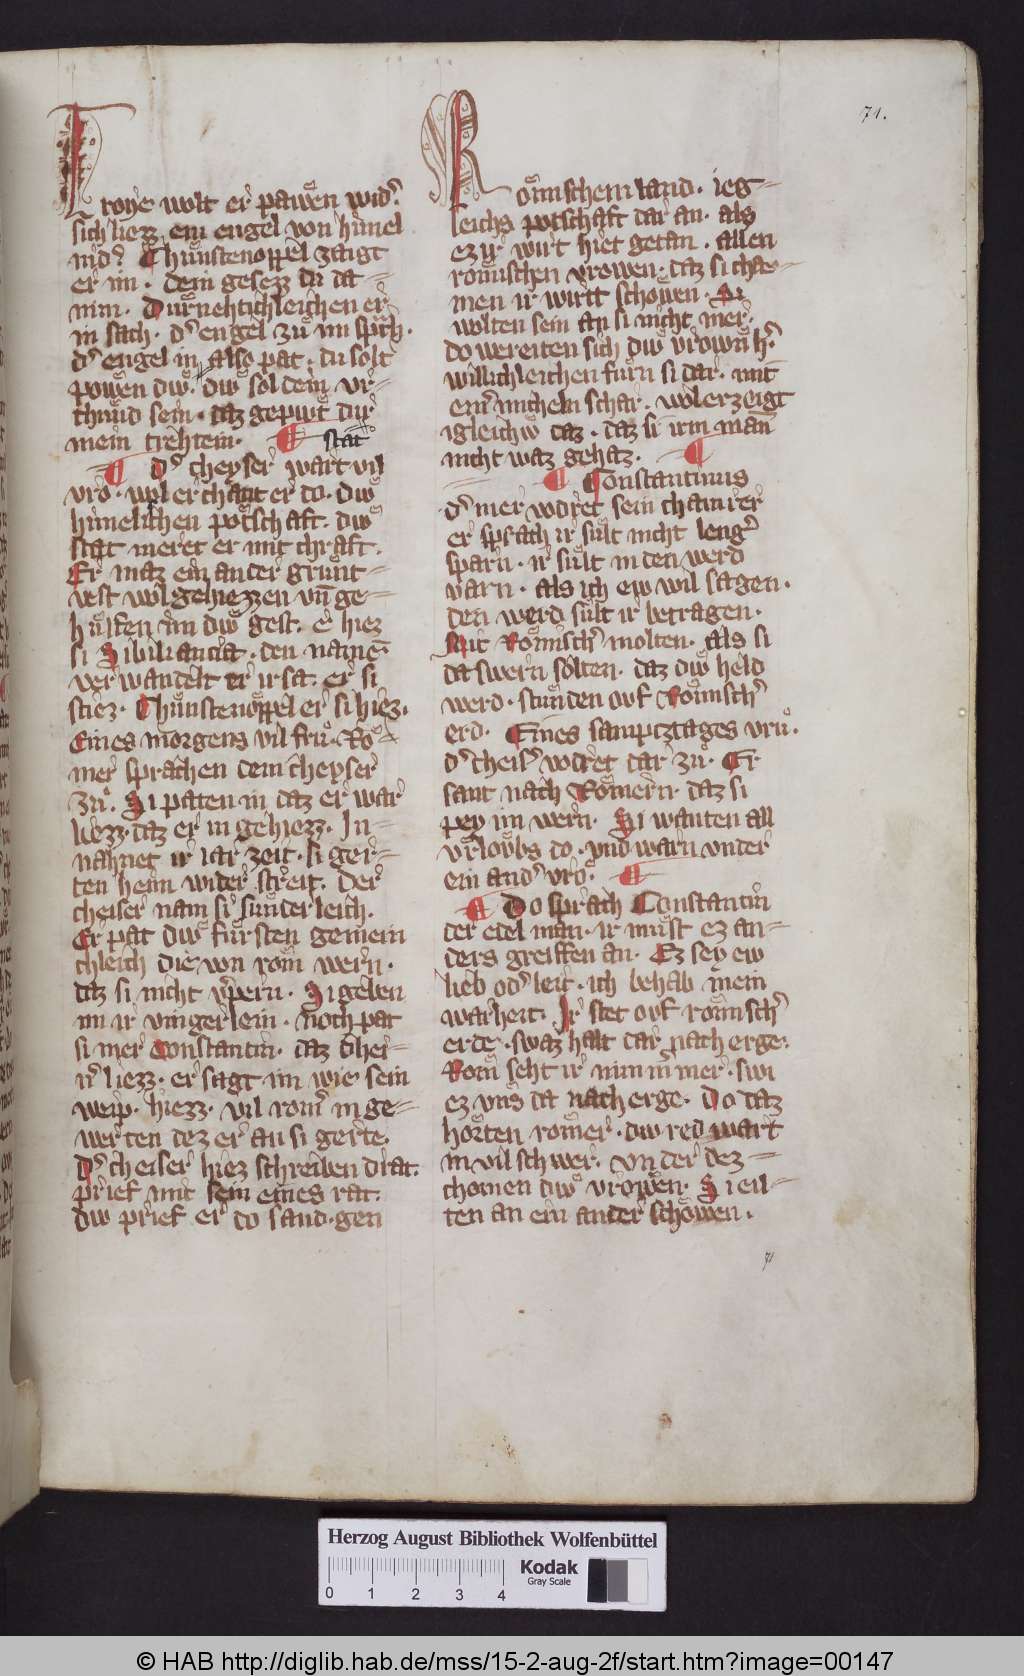 71.
Troye wolt er pawen wid᾽.
sich liezz ein engel von himel
nid᾽ Chunstenoppel zaigt
er im. dem gesezz du da=
nim. Durnehtichleichen er
in sach. d᾽ engel zů im sprach.
d᾽ engel in also pat. du solt
powen diw. diw sol dein vr=
chund sein. daz gepiwt dir
mein trehtein. stat
d᾽ cheyser wart vil
vro. wol erchant er do. diw
himelichen potschaft. diw
stat meret er mit chraft.
Er maz ein ander grunt=
vest wol gehiezzen vn̄ ge=
hulfen im diw gest. er hiez
si Sibiliancia. den namē
verwandelt er ir sa. er si
stiez. Chunstenoppel er si hiez.
Eines morgens vil frů. Rö=
mer sprachen dem cheyser
zů. Si paten in daz er war
liezz. daz er in gehiezz. In=
nahnet ir iar zeit. si ger=
ten heim wider streit. Der
cheiser nam si sunderleich.
Er pat diw fursten gemein
chleich die von rom wern.
daz si nicht v᾽pern. Si geben
im ir vingerlein. noch pat
si mer Constantin. daz chei=
n᾽ liezz. er sagt im wie sein
weip. hiezz. vil rom᾽ in ge=
werten dez er an si gerte.
D᾽ cheiser hiez schreiben drat.
prief mit sein eines rat.
diw prief er do sand. gen
Römischem land. ieg=
leichs potschaft dar an. als
ez ir wirt hiet getan. allen
romischen vrowen. daz si chae=
men ir wirtt schowen. Si
wolten sein an si nicht mer.
do wereiten sich diw vrown h᾽.
willichleichen furn si dar. mit
ein᾽ micheln schar. wol erzeigt
igleichw daz. daz si irm man
nicht waz gehaz.
Constantinus
d᾽ mer vodret sein chamrer
er sprach ir sult nicht leng᾽
sparn. ir sult in den werd
varn. als ich ew wil sagen.
den werd sult ir betragen.
Mit Römisch᾽ molten. als si
da swern solten. daz diw held
werd. stunden ouf Römisch᾽
erd. Eines sampcztages vrů.
d᾽ cheis᾽ vodret dar zů. Er
sant nach Römern. daz si
pey im wern. Si wanten all
vrloubs do. vnd warn vnder
ein and᾽ vro.
Do sprach Constantin
der edel man. ir můst ez an=
ders greiffen an. Ez sey ew
lieb od᾽ leit. ich behab mein
warheit. Ir stet ouf römisch᾽
erde. swaz halt dar nach erge.
Rom seht ir nimmer mer. swi
ez vns da nach erge. Do daz
horten romer. diw red wart
in vil schwer. vnder dez=
chomen diw vrowen. Si eil=
ten an ein ander schowen.
71
Herzog August Bibliothek Wolfenbüttel
Kodak
Gray Scale
0 1 2 3 4
© HAB http://diglib.hab.de/mss/15-2-aug-2f/start.htm?image=00147